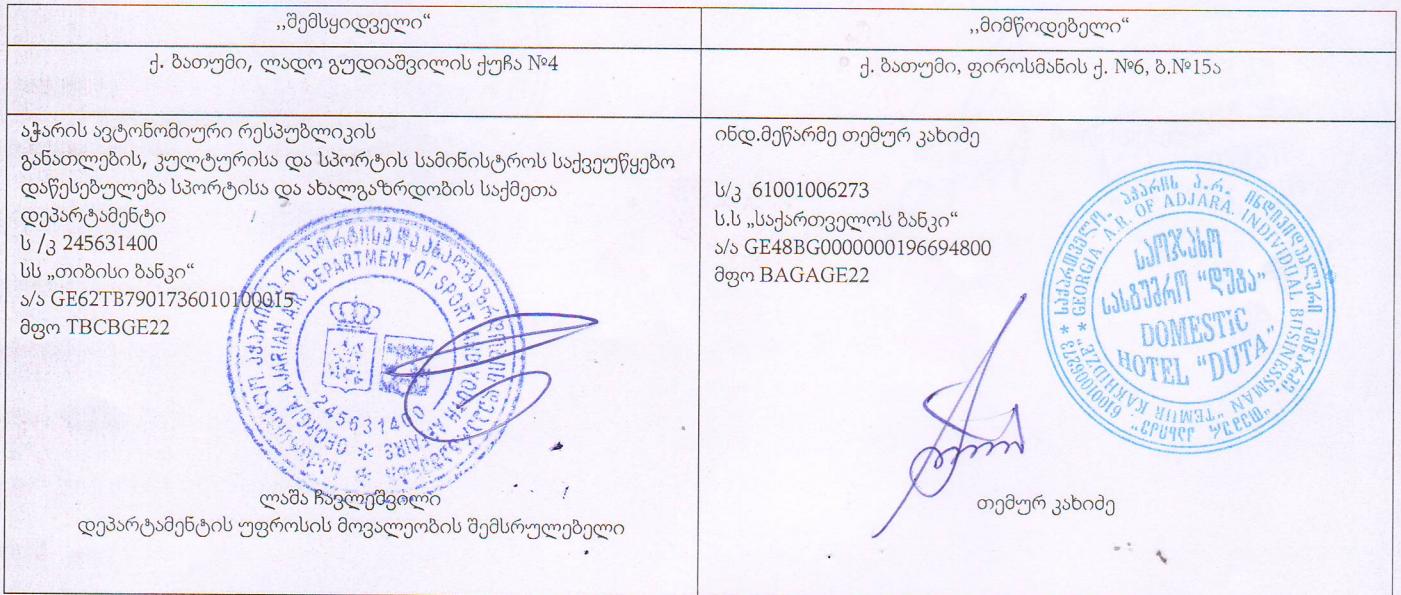 „შემსყიდველი“
„მიმწოდებელი“
ქ. ბათუმი, ლადო გუდიაშვილის ქუჩა №4
ქ. ბათუმი, ფიროსმანის ქ. №6, ბ.№15ა
აჭარის ავტონომიური რესპუბლიკის
განათლების, კულტურისა და სპორტის სამინისტროს საქვეუწყებო
დაწესებულება სპორტისა და ახალგაზრდობის საქმეთა
დეპარტამენტი
ს /კ 245631400
სს „თიბისი ბანკი“
ა/ა GE62TB7901736010100015
მფო TBCBGE22
GEORGIA AJARIAN A.R. DEPARTMENT OF SPORT AND YOUTH AFFAIRS
245631400
ლაშა ჩავლეშვილი
დეპარტამენტის უფროსის მოვალეობის შემსრულებელი
ინდ.მეწარმე თემურ კახიძე
ს/კ 61001006273
ს.ს „საქართველოს ბანკი“
ა/ა GE48BG0000000196694800
მფო BAGAGE22
საქართველო. აჭარის ა.რ. ინდივიდუალური მეწარმე
61001006273
GEORGIA, A.R. OF ADJARA, INDIVIDUAL BUSINESSMAN "TEMUR KAKHIDZE"
საოჯახო
სასტუმრო "დუტა"
DOMESTIC
HOTEL "DUTA"
თემურ კახიძე